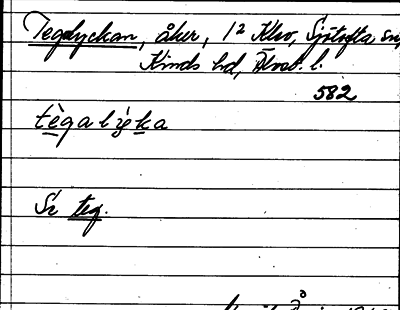 Tegdyckan, åker, 1² Klev, Sjötofta sn,
Kinds hd, Älvsb. l.
582
tègalỳka
Se teg.